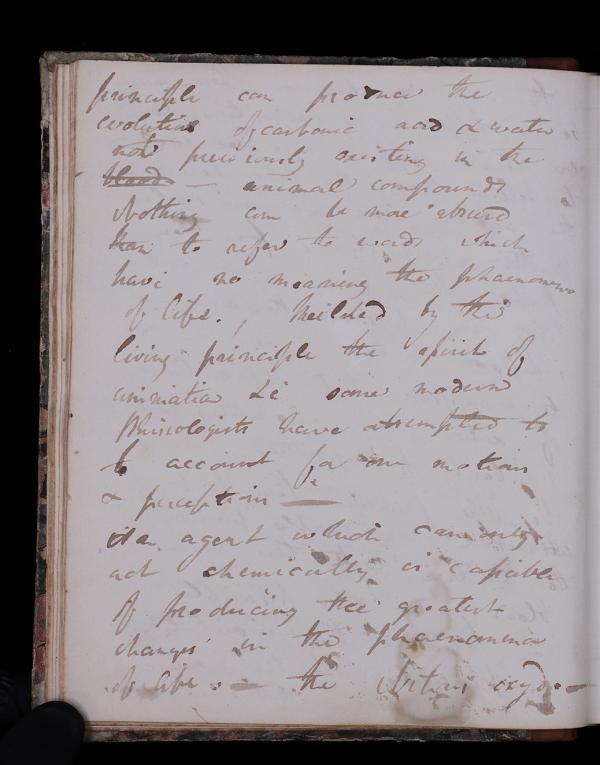 principle can produce the
evolution of carbonic acid & water
not previously existing in the
blood – animal compounds
Nothing can be more absurd
than to refer to words which
have no meaning the phaenomena
of life., by the
living principle the spirit of
animation &c some modern
Phisiologists have attempted to
to account for our motions
& perceptions —
an agent which can only
act chemically is capable
of producing the greatest
changes in the phaenomena
of life : – the Nitrous oxyde –